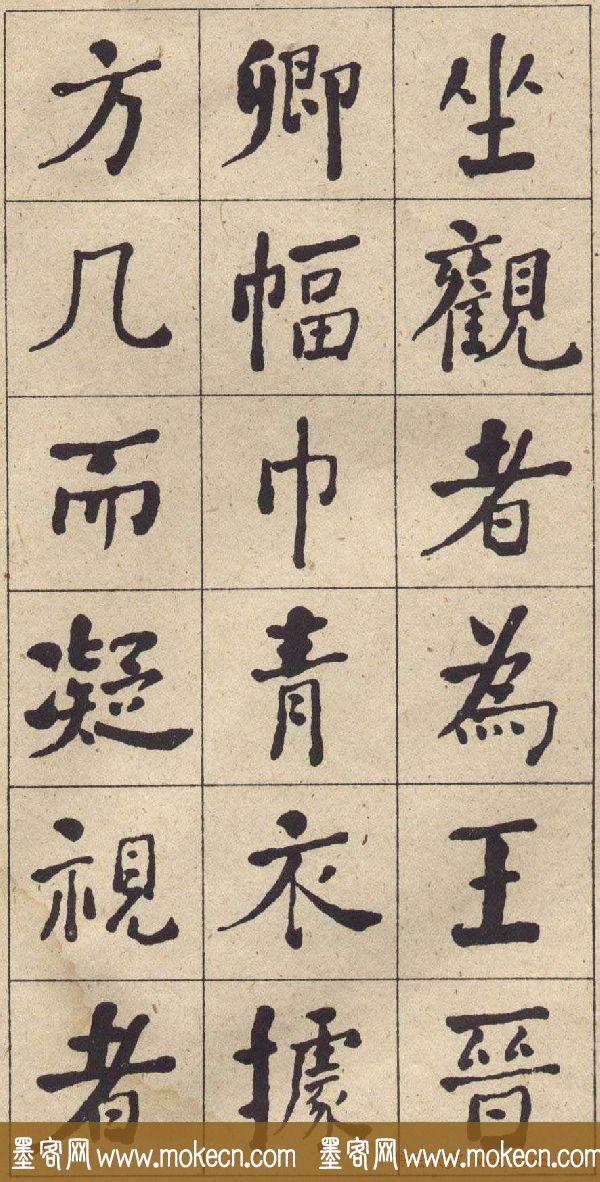 坐觀者為王晉
卿幅巾青衣據
方几而凝視者
墨客网 www.mokecn.com 墨客网 www.mokecn.com